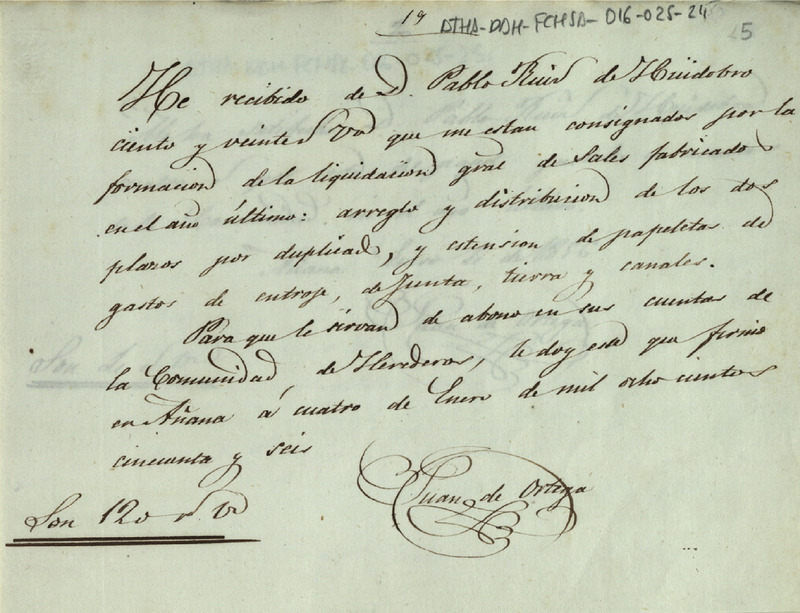 19
ATHA-DAH-FCHSA-016-025-24
5
He recibido de D. Pablo Ruiz de Huidobro
ciento y veinte rs. vn que me estan consignados por la
formacion de la liquidacion gral de Sales fabricado
en el año último: arreglo y distribucion de los dos
plazos por duplicad, y estension de papeletas de
gastos de entroje, de Junta, tierra y canales.
Para que le sirvan de abono en sus cuentas de
la Comunidad, de Herederos, le doy este que firmo
en Añana á cuatro de Enero de mil ocho cientos
cincuenta y seis
Juan de Ortega
Son 120 rs vn